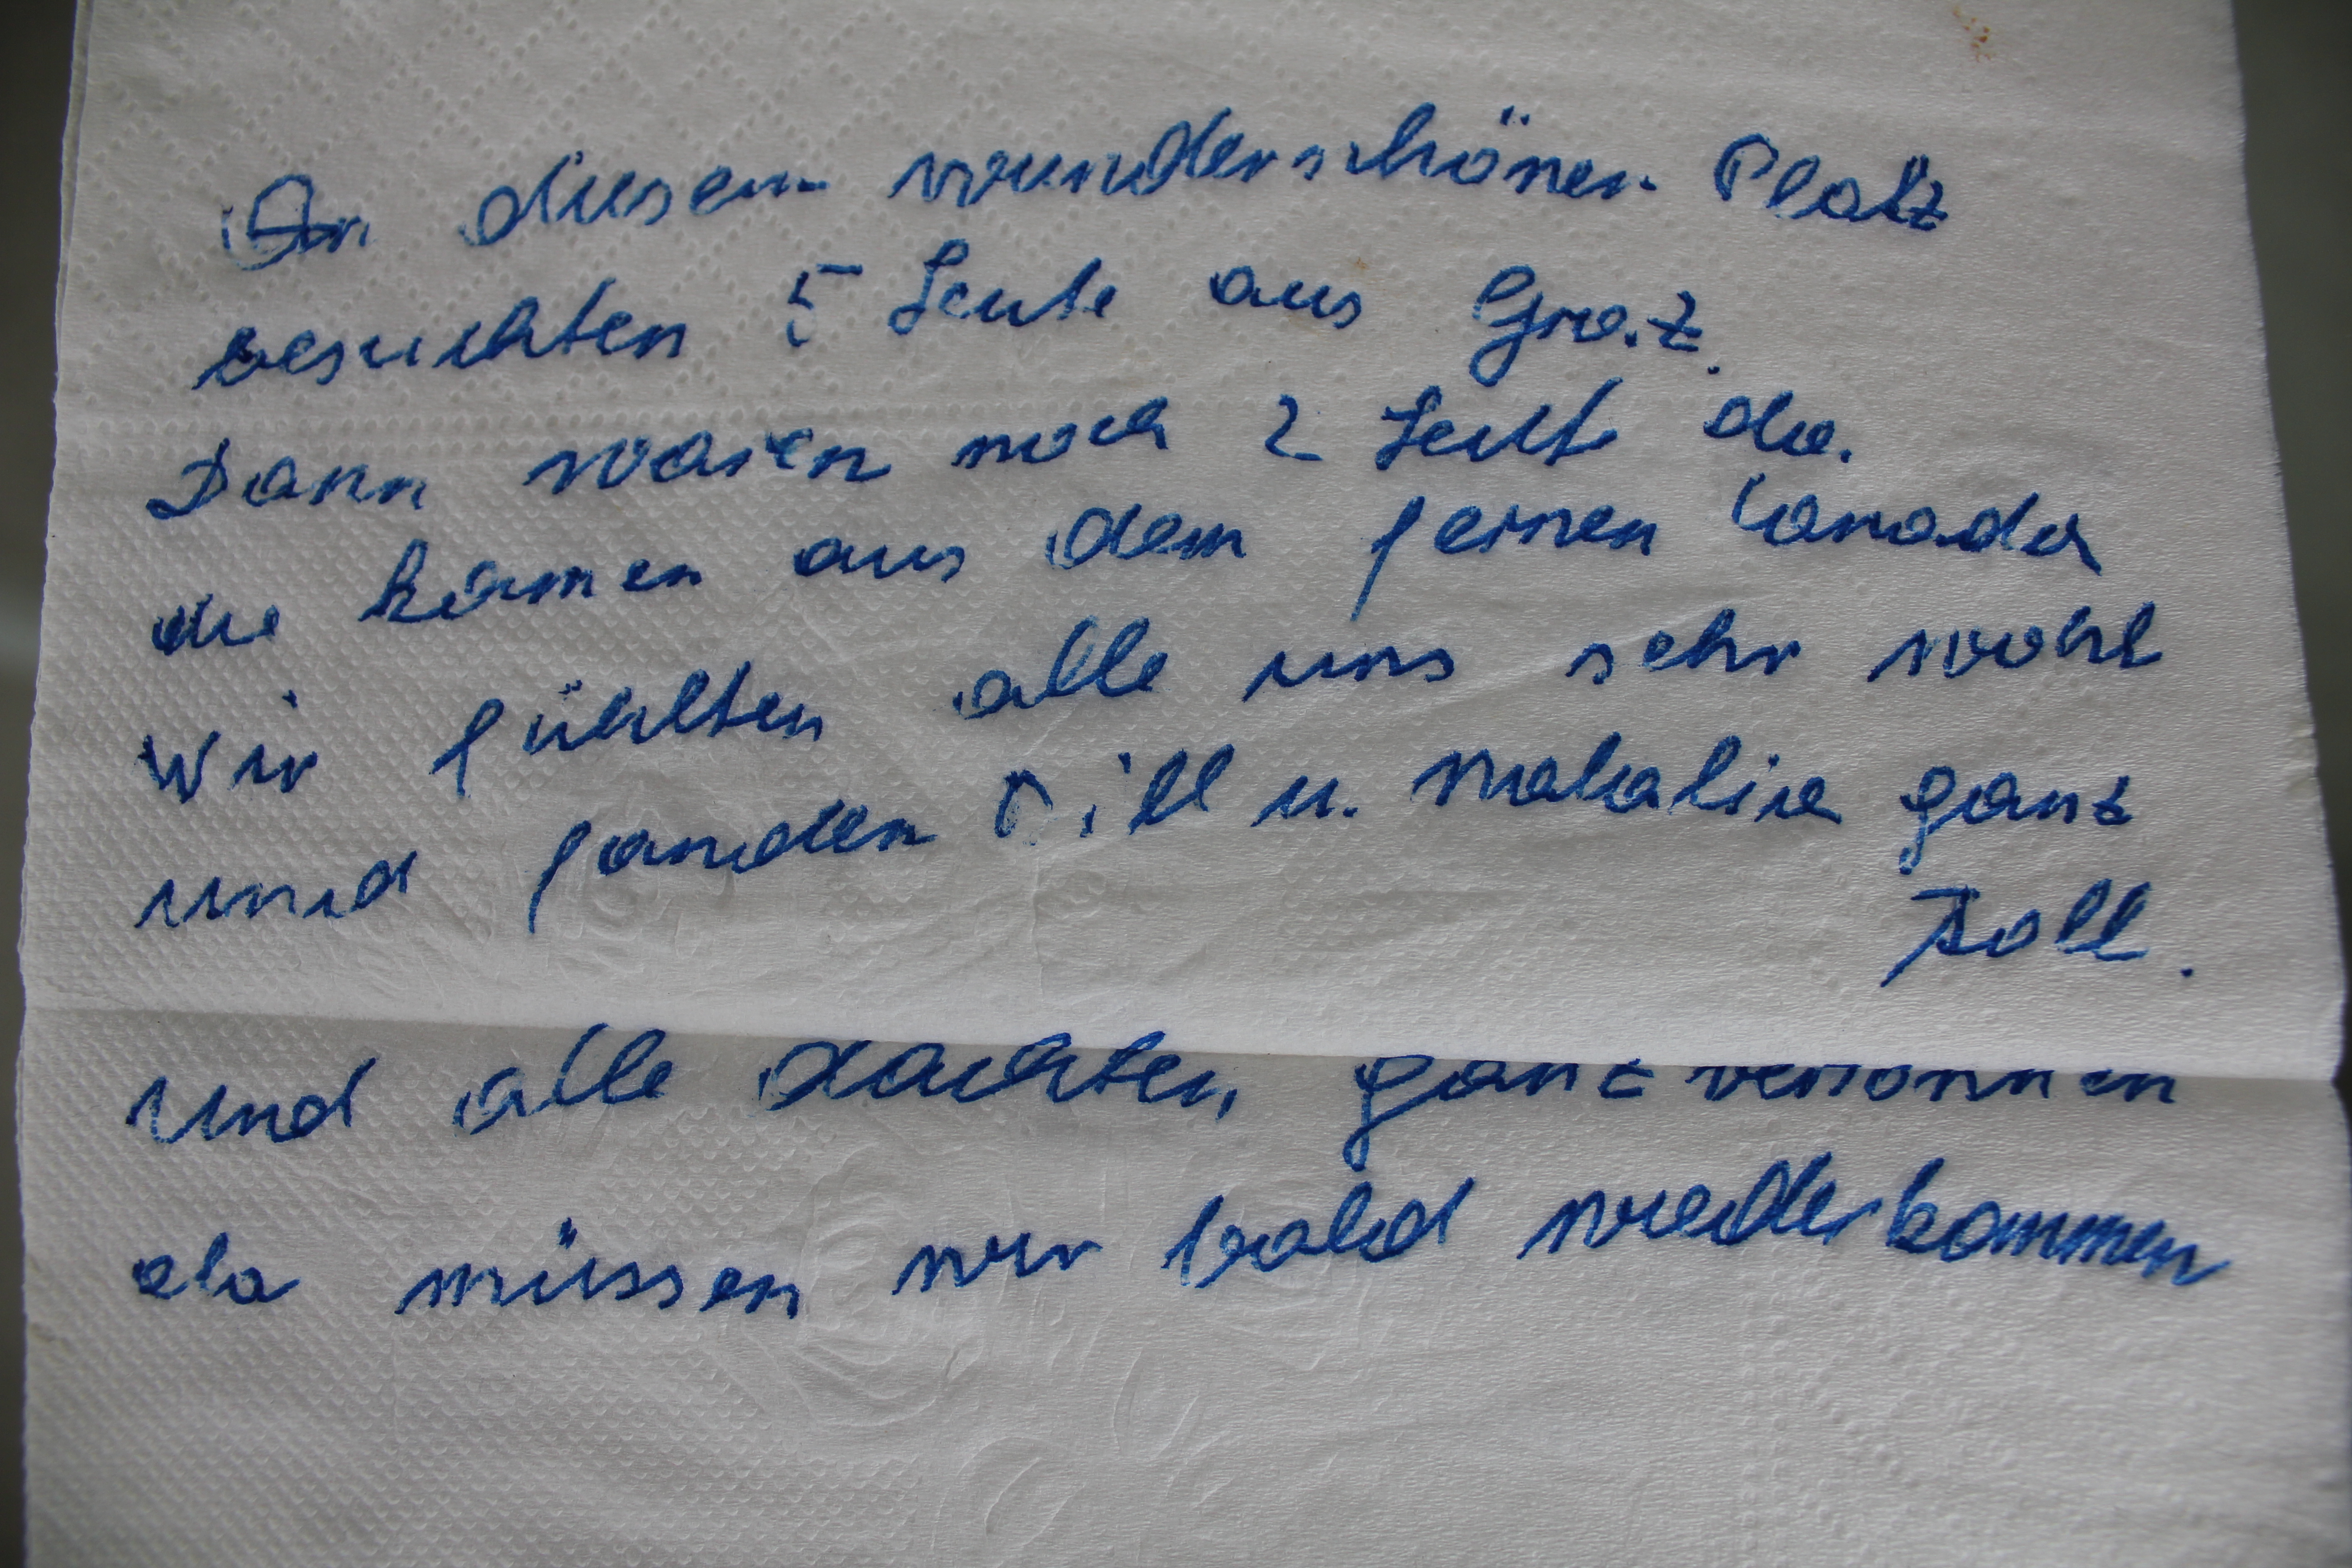 An diesem wunderschönen Platz
besuchten 5 Leute aus Graz.
Dann waren noch 2 Leute da.
die kamen aus dem fernen Canada
Wir fühlten alle uns sehr wohl
und fanden Bill u. Natalie ganz
toll.
Und alle dachten, ganz versonnen
da müssen wir bald wiederkommen